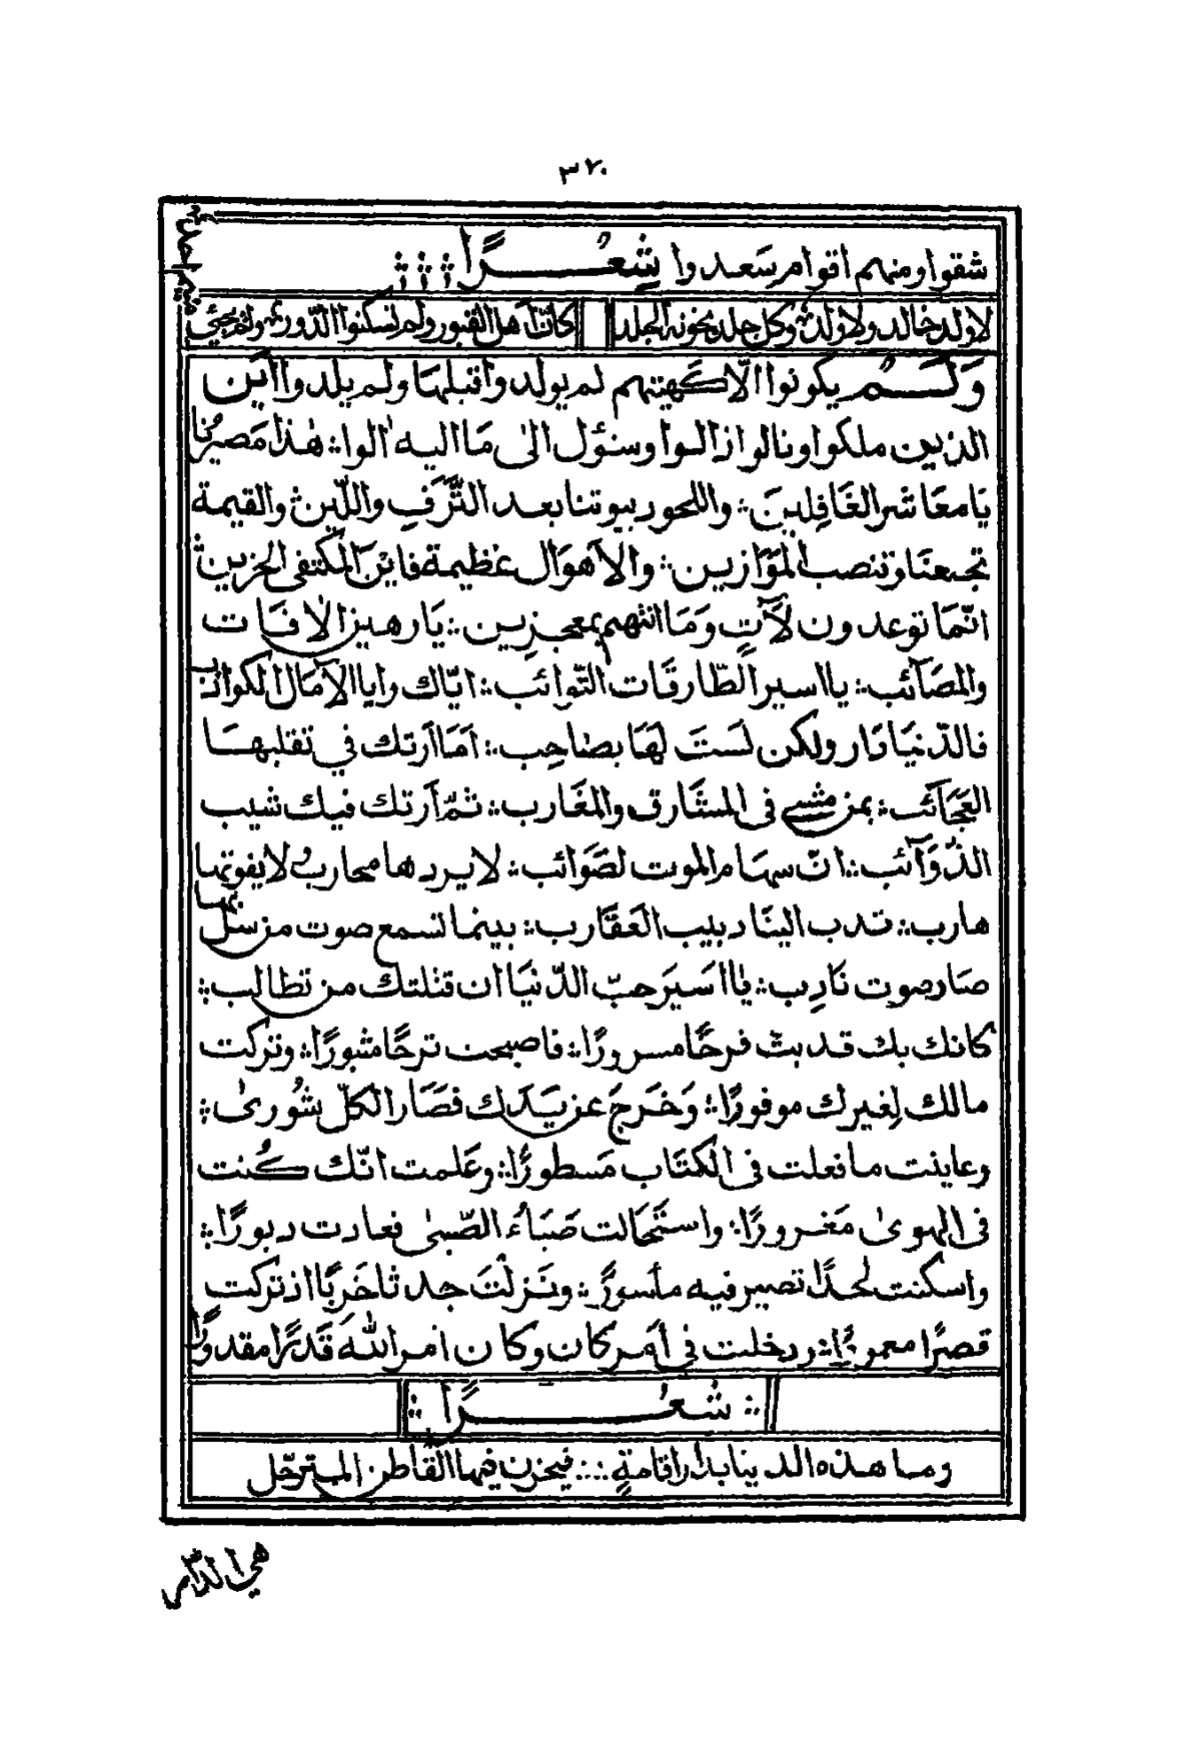 ٣٧٠
شقوا ومنهم اقوام سَعدوا شِعْرًا ؞ ؞ ؞
لا ولد خالد ولا ولد وكل جلد يخونه الجلد كانّ اهل القبور ولم يسكنوا الدّور
وَلَم يكونوا الّا كهيتهم لم يولد واقبلها ولم يلدوا اَيَن
الذين ملكوا ونالوا زالوا وسنؤل الىٰ مَا اليه اٰلوا ؞ هٰذا مَصيرُنا
يَا معَاشر الغَافِلينَ ؞ واللحور بيوتنا بعد التَّرَفِ واللّين والقيمة
تجمعنا وتنصب المَوَازين ؞ والاَهوَال عَظيمة فاين المكتفى الحزين
انّمَا توعدون لَآتٍ وَمَا انتُهم بمعجزِين ؞ يَا رهين الاٰفَات
والمصَآئب ؞ يا اسير الطّارقَات النّوائب ؞ ايّاك وايا الآمَال الكواذب
فالدّنيَا دَار ولكن لَستَ لهَا بصَاحِب ؞ اَمَا اَرتك في تقلبهَا
العجَآئب ؞ بمن مشى فى المشَارق والمغَارب ؞ ثمّ اَرتك فيك شيب
الذّوَآئب ؞ انّ سهَام الموت لصَوَائب ؞ لا يردها محاربٌ لا يفوتها
هارب ؞ تدب الينَا دبيب العَقَارب ؞ بينما تسمع صوت من سل بها
صَار صوت نَادِب ؞ يٰا اسَيرَ حبّ الدّنيَا ان قتلتك من تطالب ؞
كانك بك قد بتّ فرحًا مسرورًا ؞ فاصبحت ترحًا مثبورًا ؞ وتركت
مالك لِغيرك موفورًا ؞ وَخَرجَ عن يَدِك فصَار الكلّ شُورىٰ ؞
وعاينت ما فعلت فى الكتَاب مَسطورًا ؞ وعَلمت انّك كُنت
فى الهوىٰ مَغرورًا ؞ واستَحَالت صَبَاءُ الصّبىٰ فعادت دبورًا ؞
واسكنت لحدًا تصير فيه مأسورًا ؞ ونَزلتَ جدثا خَربًا اذ تركت
قصرًا معمورًا ؞ ودخلت فى اَمر كان وكان اَمر اللّٰهَ قَدَرًا مقدورًا
؞ شعْرًا ؞
ومَا هذه الدينا بدار اقامةٍ ؞ فيحزن فيها القَاطن المترحّل
هي الدّار